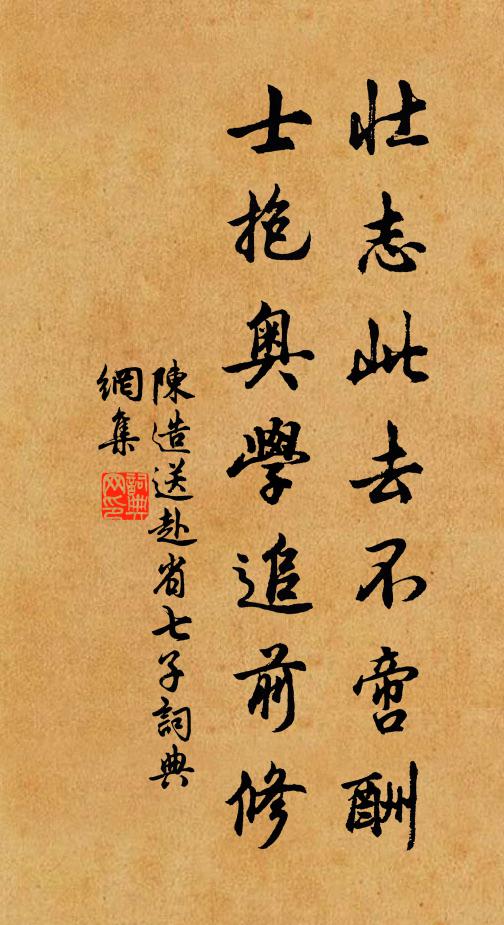 壮志此去不啻酬
士抱奥學追前修
陳造送赴省七子詞典
網集
詞典
网印